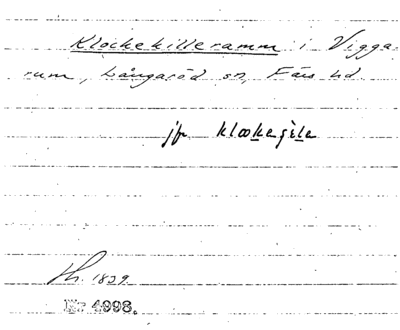 Klockekilleramm i Vigga-
rum, Långaröd sn, Färs hd.
jfr klookagèla
1839.
Nr 4998.